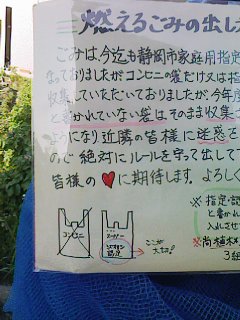 燃えるごみの出し方
ごみは、今迄も静岡市家庭用指定
なっておりましたがコンビニの袋だけ又は指
収集していただいておりましたが、今年度
と書かれていない袋はそのまま収集さ
ようになり近隣の皆様に迷惑を
ので絶対にルールを守って出して
皆様の♥に期待します。よろしく
※指定・認
と書かれ
入れさせ
※尚、植木
3組
コンビニ
スーパー
認定
ここが
大切!